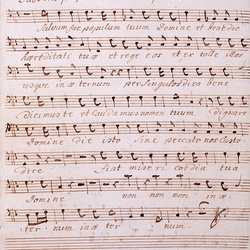 Salvum fac populum tuum Domine et benedic
haereditati tuae et rege eos et extolle illos
usque in aeternum per Singulos dies bene
dicimus te et Laudamus nomen tuum Dignare
Domine die isto Sine peccato nos Custo
dire fiat miseri cordia tua
Domine non non non in ae
ternum in ae ter num